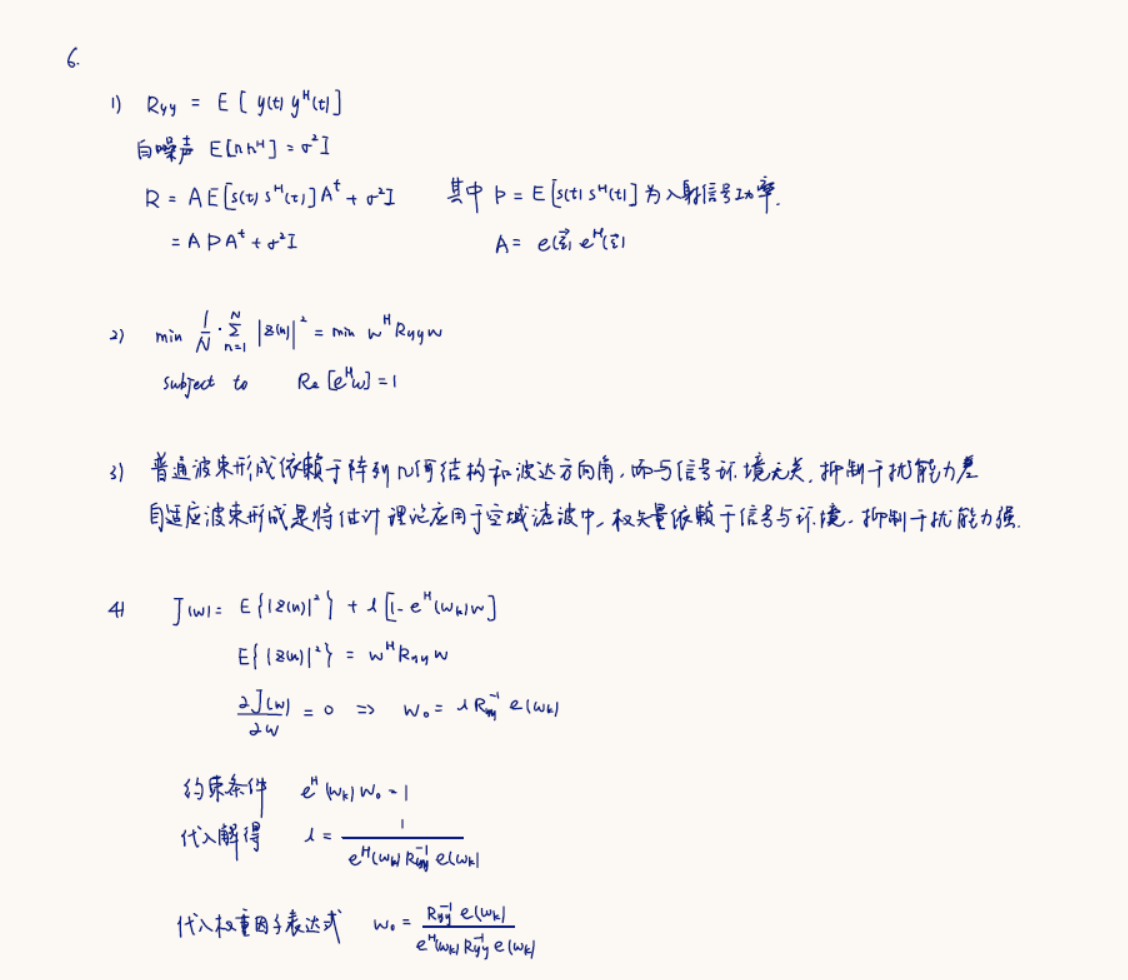 6.
1) Ryy = E [ y(t) y^H(t) ]
白噪声 E[n n^H] = σ²I
R = A E[s(t) s^H(t)] A^t + σ²I 其中 P = E[s(t) s^H(t)] 为入射信号功率.
= A P A^t + σ²I A = e(ξ⃗) e^H(ξ⃗)
2) min 1/N · Σ_{n=1}^{N} |z(n)|² = min w^H Ryy w
subject to Re[e^H w] = 1
3) 普通波束形成依赖于阵列几何结构和波达方向角,而与信号环境无关,抑制干扰能力差
自适应波束形成是将估计理论应用于空域滤波中,权矢量依赖于信号与环境,抑制干扰能力强.
4) J(w) = E{|z(n)|²} + λ[1 - e^H(w_k)w]
E{|z(n)|²} = w^H Ryy w
∂J(w)/∂w = 0 => w₀ = λ Ryy^-1 e(w_k)
约束条件 e^H(w_k) w₀ = 1
代入解得 λ = 1 / (e^H(w_k) Ryy^-1 e(w_k))
代入权重因子表达式 w₀ = Ryy^-1 e(w_k) / (e^H(w_k) Ryy^-1 e(w_k))